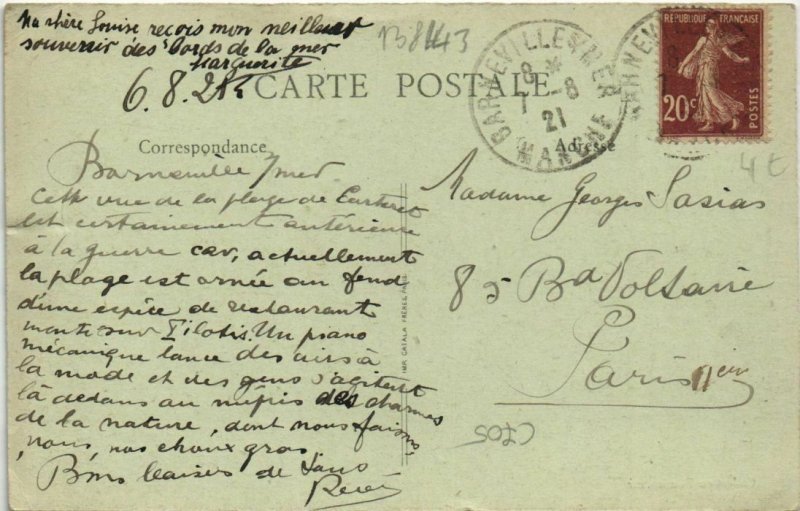 Ma chère Louise reçois mon meilleur
souvenir des bords de la mer
Marguerite
6.8.21
B8443
CARTE POSTALE
BARNEVILLE S MER
8 *
7 -8
21
MANCHE
RÉPUBLIQUE FRANÇAISE
20c
POSTES
4 €
Correspondance
Adresse
Barneville s/mer
Cette vue de la plage de Carteret
est certainement antérieure
à la guerre car, actuellement
la plage est ornée au fond
d'une espèce de restaurant
monté sur Pilotis. Un piano
mécanique lance des airs à
la mode et des gens s'agitent
là dedans au mépris des charmes
de la nature, dont nous faisons,
nous, nos choux gras.
Bons baisers de tous
René
IMP. CATALA FRÈRES, PARIS
Madame Georges Sasias
85 Bd Voltaire
Paris 11eme
C205